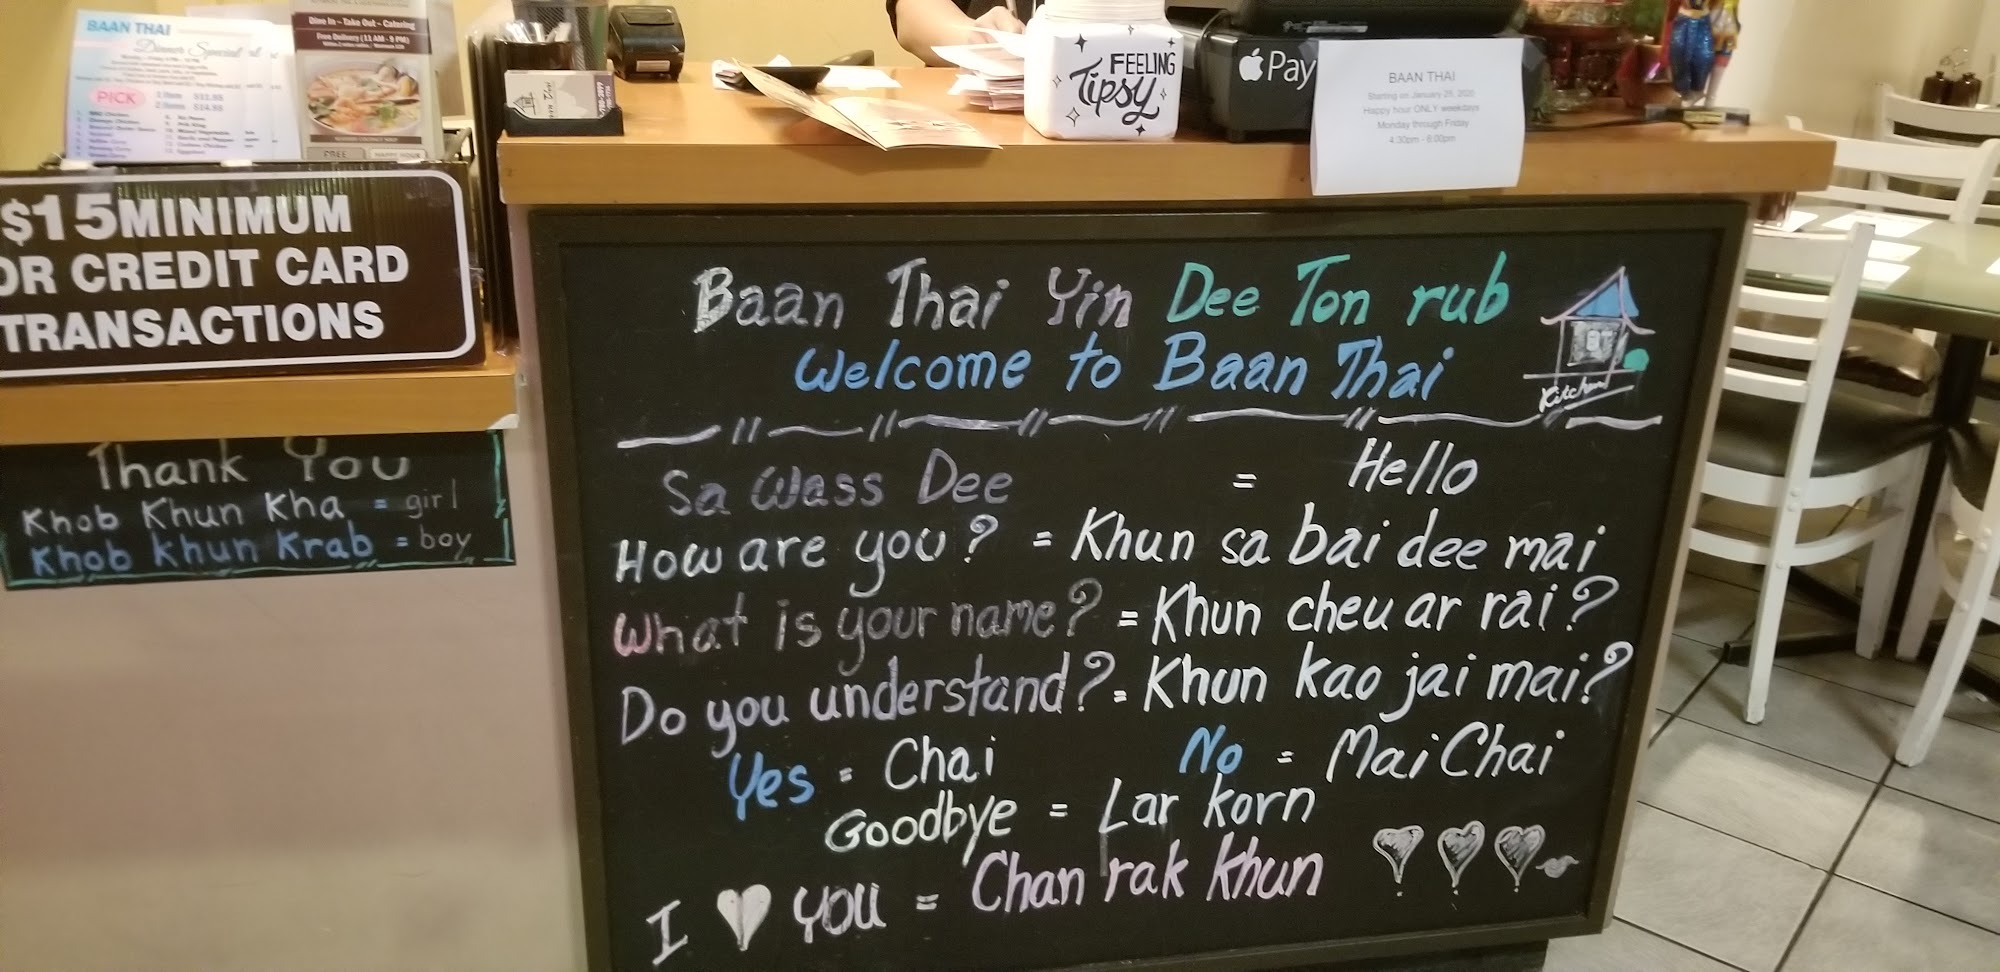 BAAN THAI
Dinner Special
PICK
1 Item $11.95
2 Items $14.95
Dine In - Take Out - Catering
Free Delivery (11 AM - 9 PM)
FREE
HAPPY HOUR
$15 MINIMUM
OR CREDIT CARD
TRANSACTIONS
Thank You
Khob Khun Kha = girl
Khob Khun Krab = boy
FEELING
Tipsy
Pay
BAAN THAI
Starting on January 29, 2020
Happy hour ONLY weekdays
Monday through Friday
4:30pm - 6:00pm
Baan Thai Yin Dee Ton rub
Welcome to Baan Thai
Kitchen
Sa Wass Dee = Hello
How are you? = Khun sa bai dee mai
What is your name? = Khun cheu ar rai?
Do you understand? = Khun kao jai mai?
Yes = Chai No = Mai Chai
Goodbye = Lar korn
I ♥ YOU = Chan rak khun